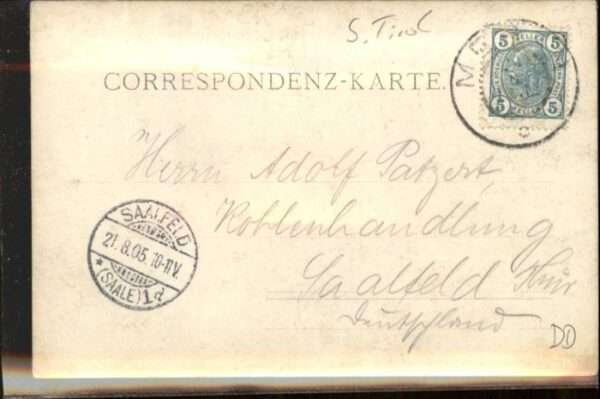 S. Tirol
5 HELLER 5
5 5
CORRESPONDENZ-KARTE.
Herrn Adolf Patzert,
Kohlenhandlung
Saalfeld Thür
Deutschland
SAALFELD
21.8.05. 10-11V.
* (SAALE) 1d
DD